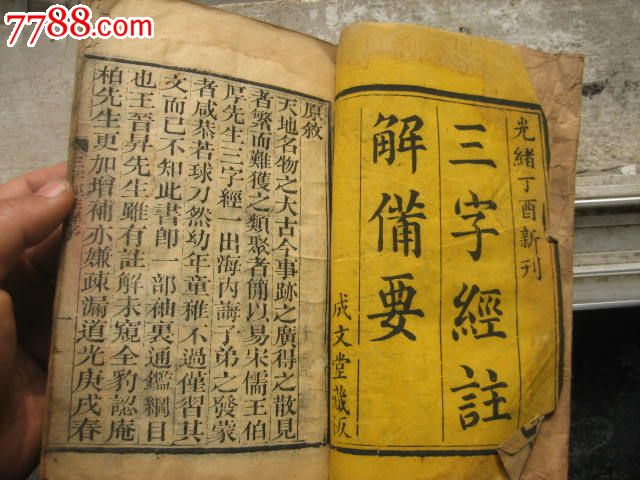 7788.com
光緒丁酉新刊
三字經註
解備要
成文堂藏板
原敘
天地名物之大古今事跡之廣得之散見
者繁而難獲之類聚者簡以易宋儒王伯
厚先生三字經一出海內誨子弟之發蒙
者咸恭若球刀然幼年童稚不過僅習其
文而已不知此書卽一部袖裏通鑑綱目
也王晉昇先生雖有註解未窺全豹認庵
柏先生更加增補亦嫌疎漏道光庚戌春